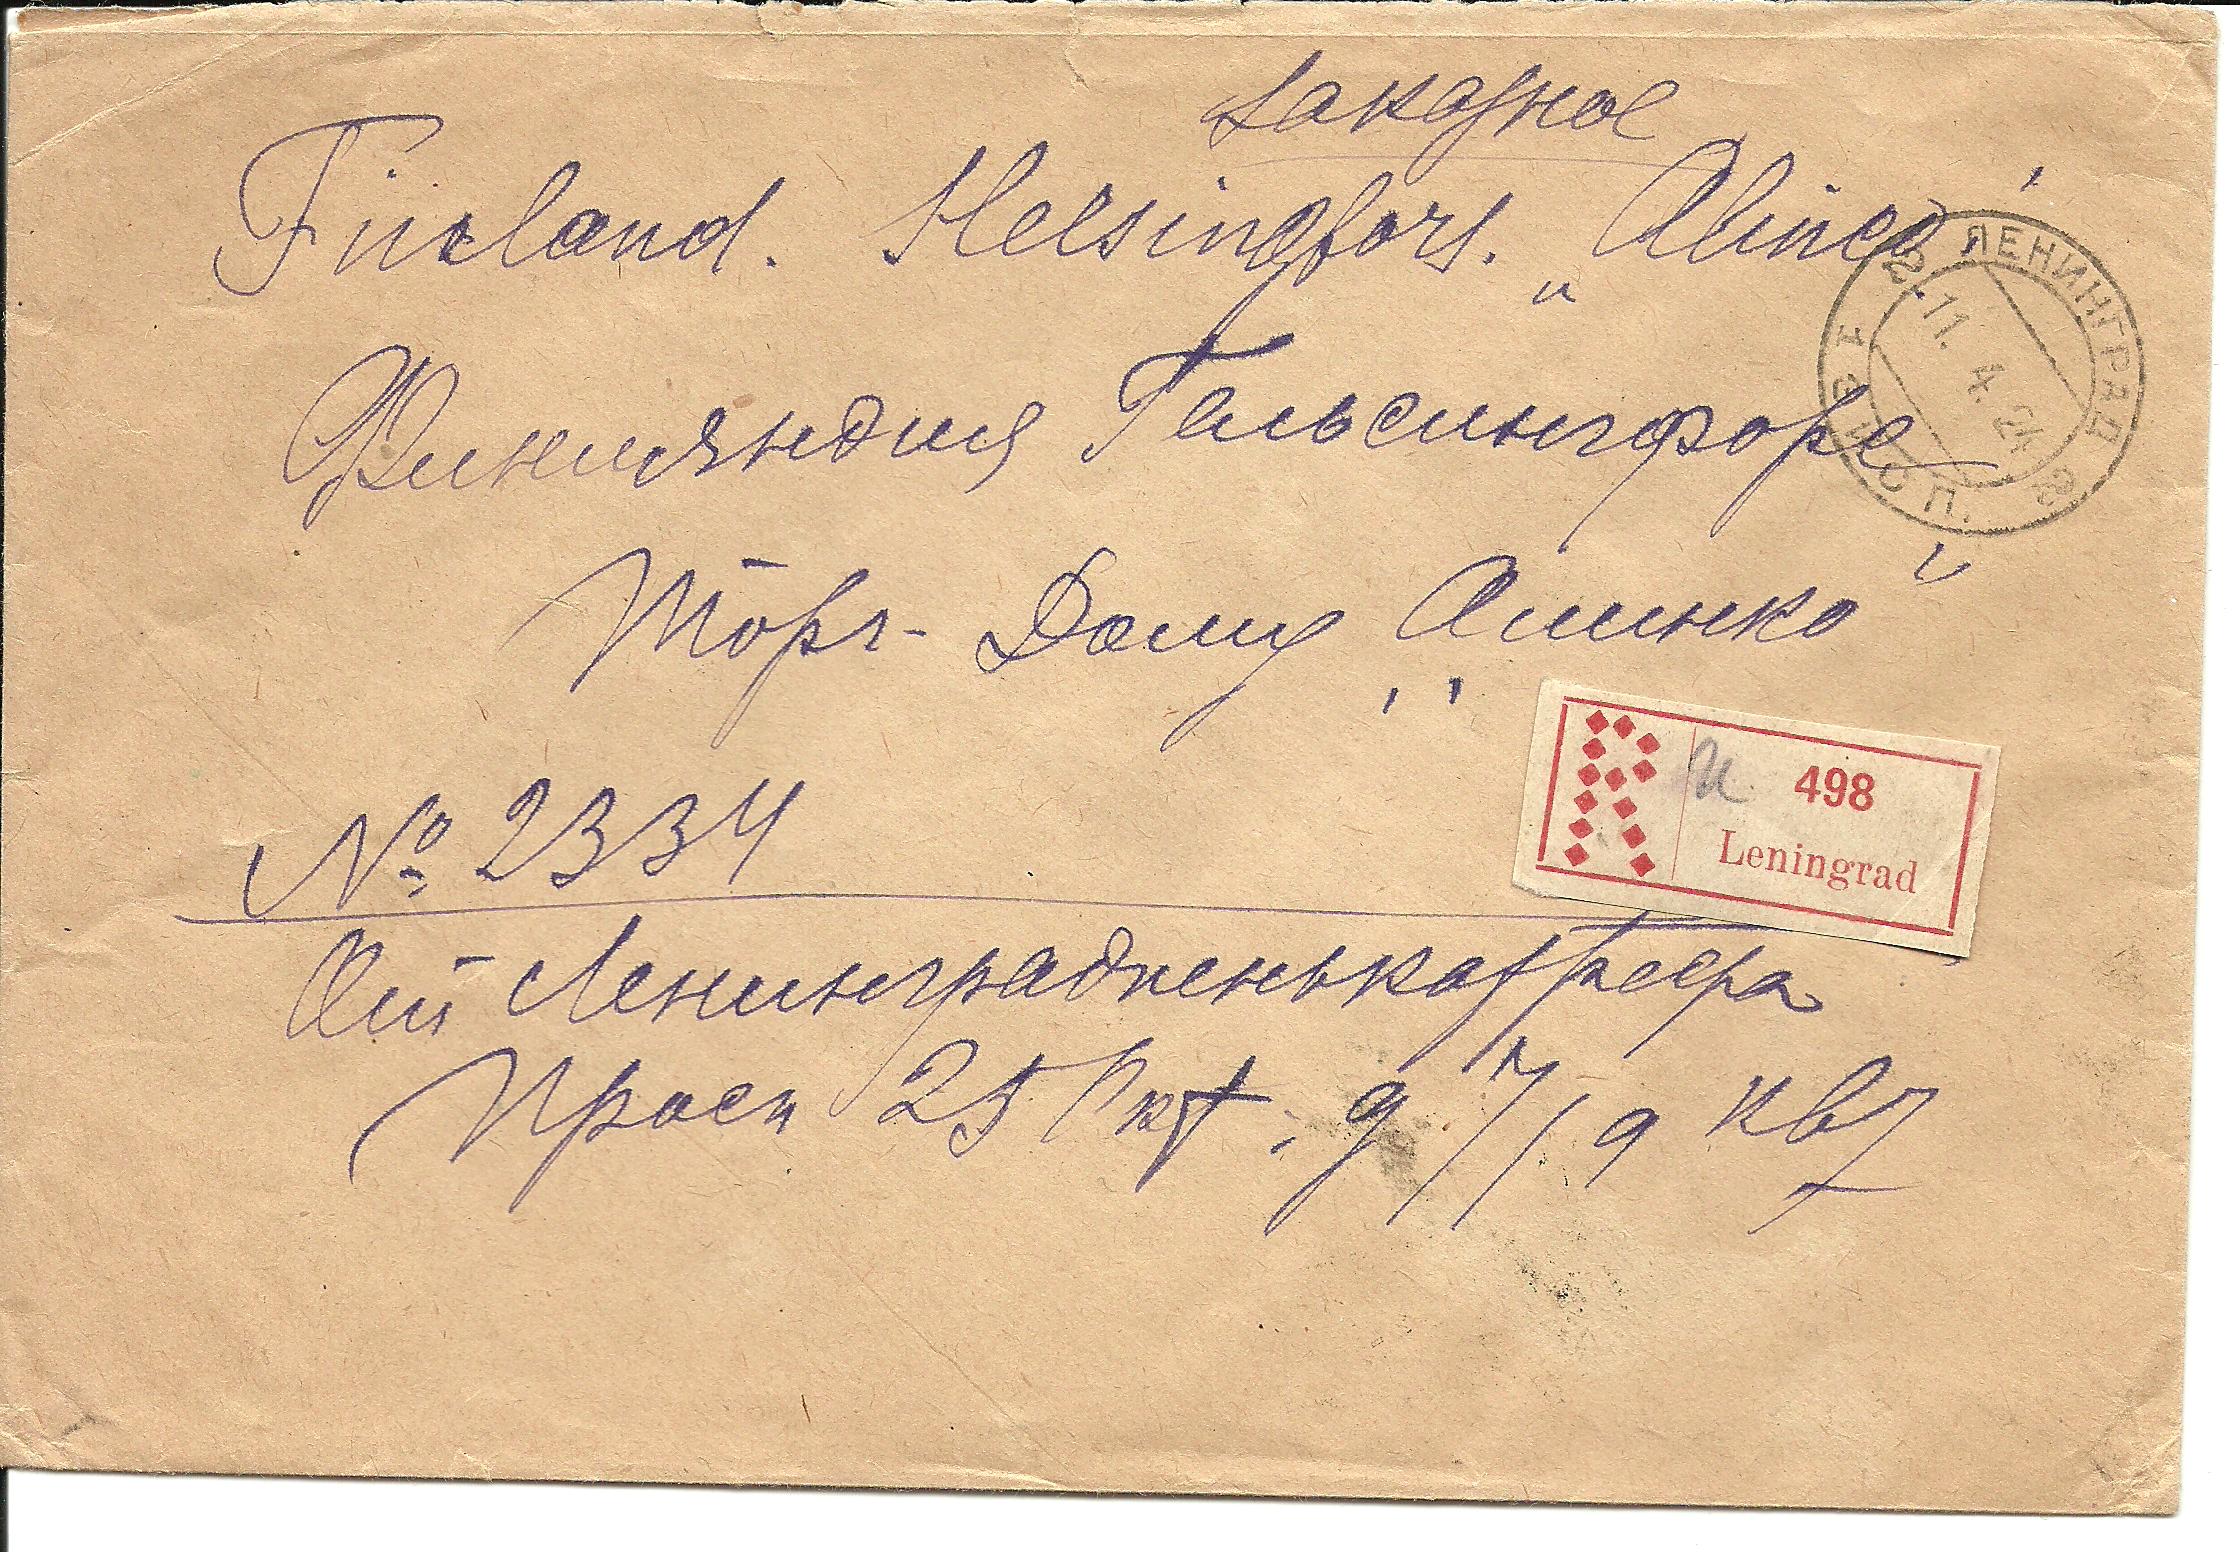 Заказное
Finland. Helsingfors. „Alinco"
Финляндия Гельсингфорс
Торг- Дому „Алинко"
ЛЕНИНГРАД
11.4.24
498
Leningrad
№ 2334
От
Просп 25 Окт. д 7/19 кв 7